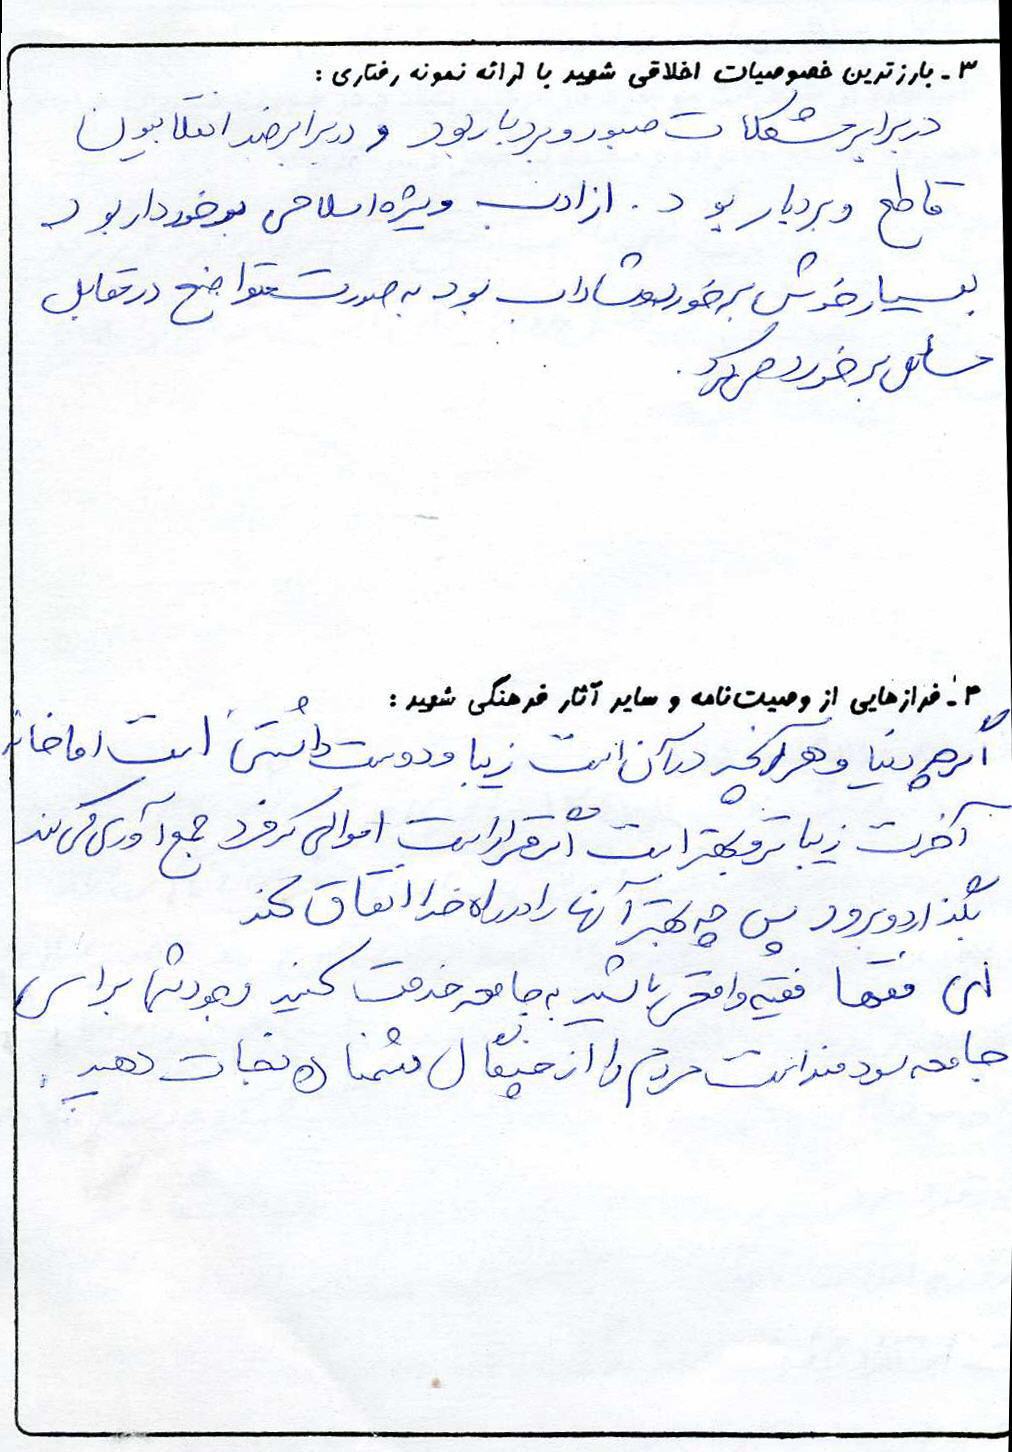 ۳ـ بارزترین خصوصیات اخلاقی شهید با ارائه نمونه رفتاری :
در برابر مشکلات صبور و بردبار بود و در برابر ضد انقلابیون
قاطع و بردبار بود . از ادب ویژه اسلامی برخوردار بود
بسیار خوش برخورد و شاداب بود به صورت متواضع در مقابل
مسائل برخورد می‌کرد .
۴ـ فرازهایی از وصیت‌نامه و سایر آثار فرهنگی شهید :
اگرچه دنیا و هر آنچه در آن است زیبا و دوست داشتنی است اما خانه
آخرت زیباتر و بهتر است اگر قرار است اموالی که فرد جمع آوری می کند
بگذارد و برود پس چه بهتر آنها را در راه خدا انفاق کند
ای فقها فقیه واقعی باشید به جامعه خدمت کنید وجود شما برای
جامعه سودمند است مردم را از چنگال دشمنان نجات دهید .